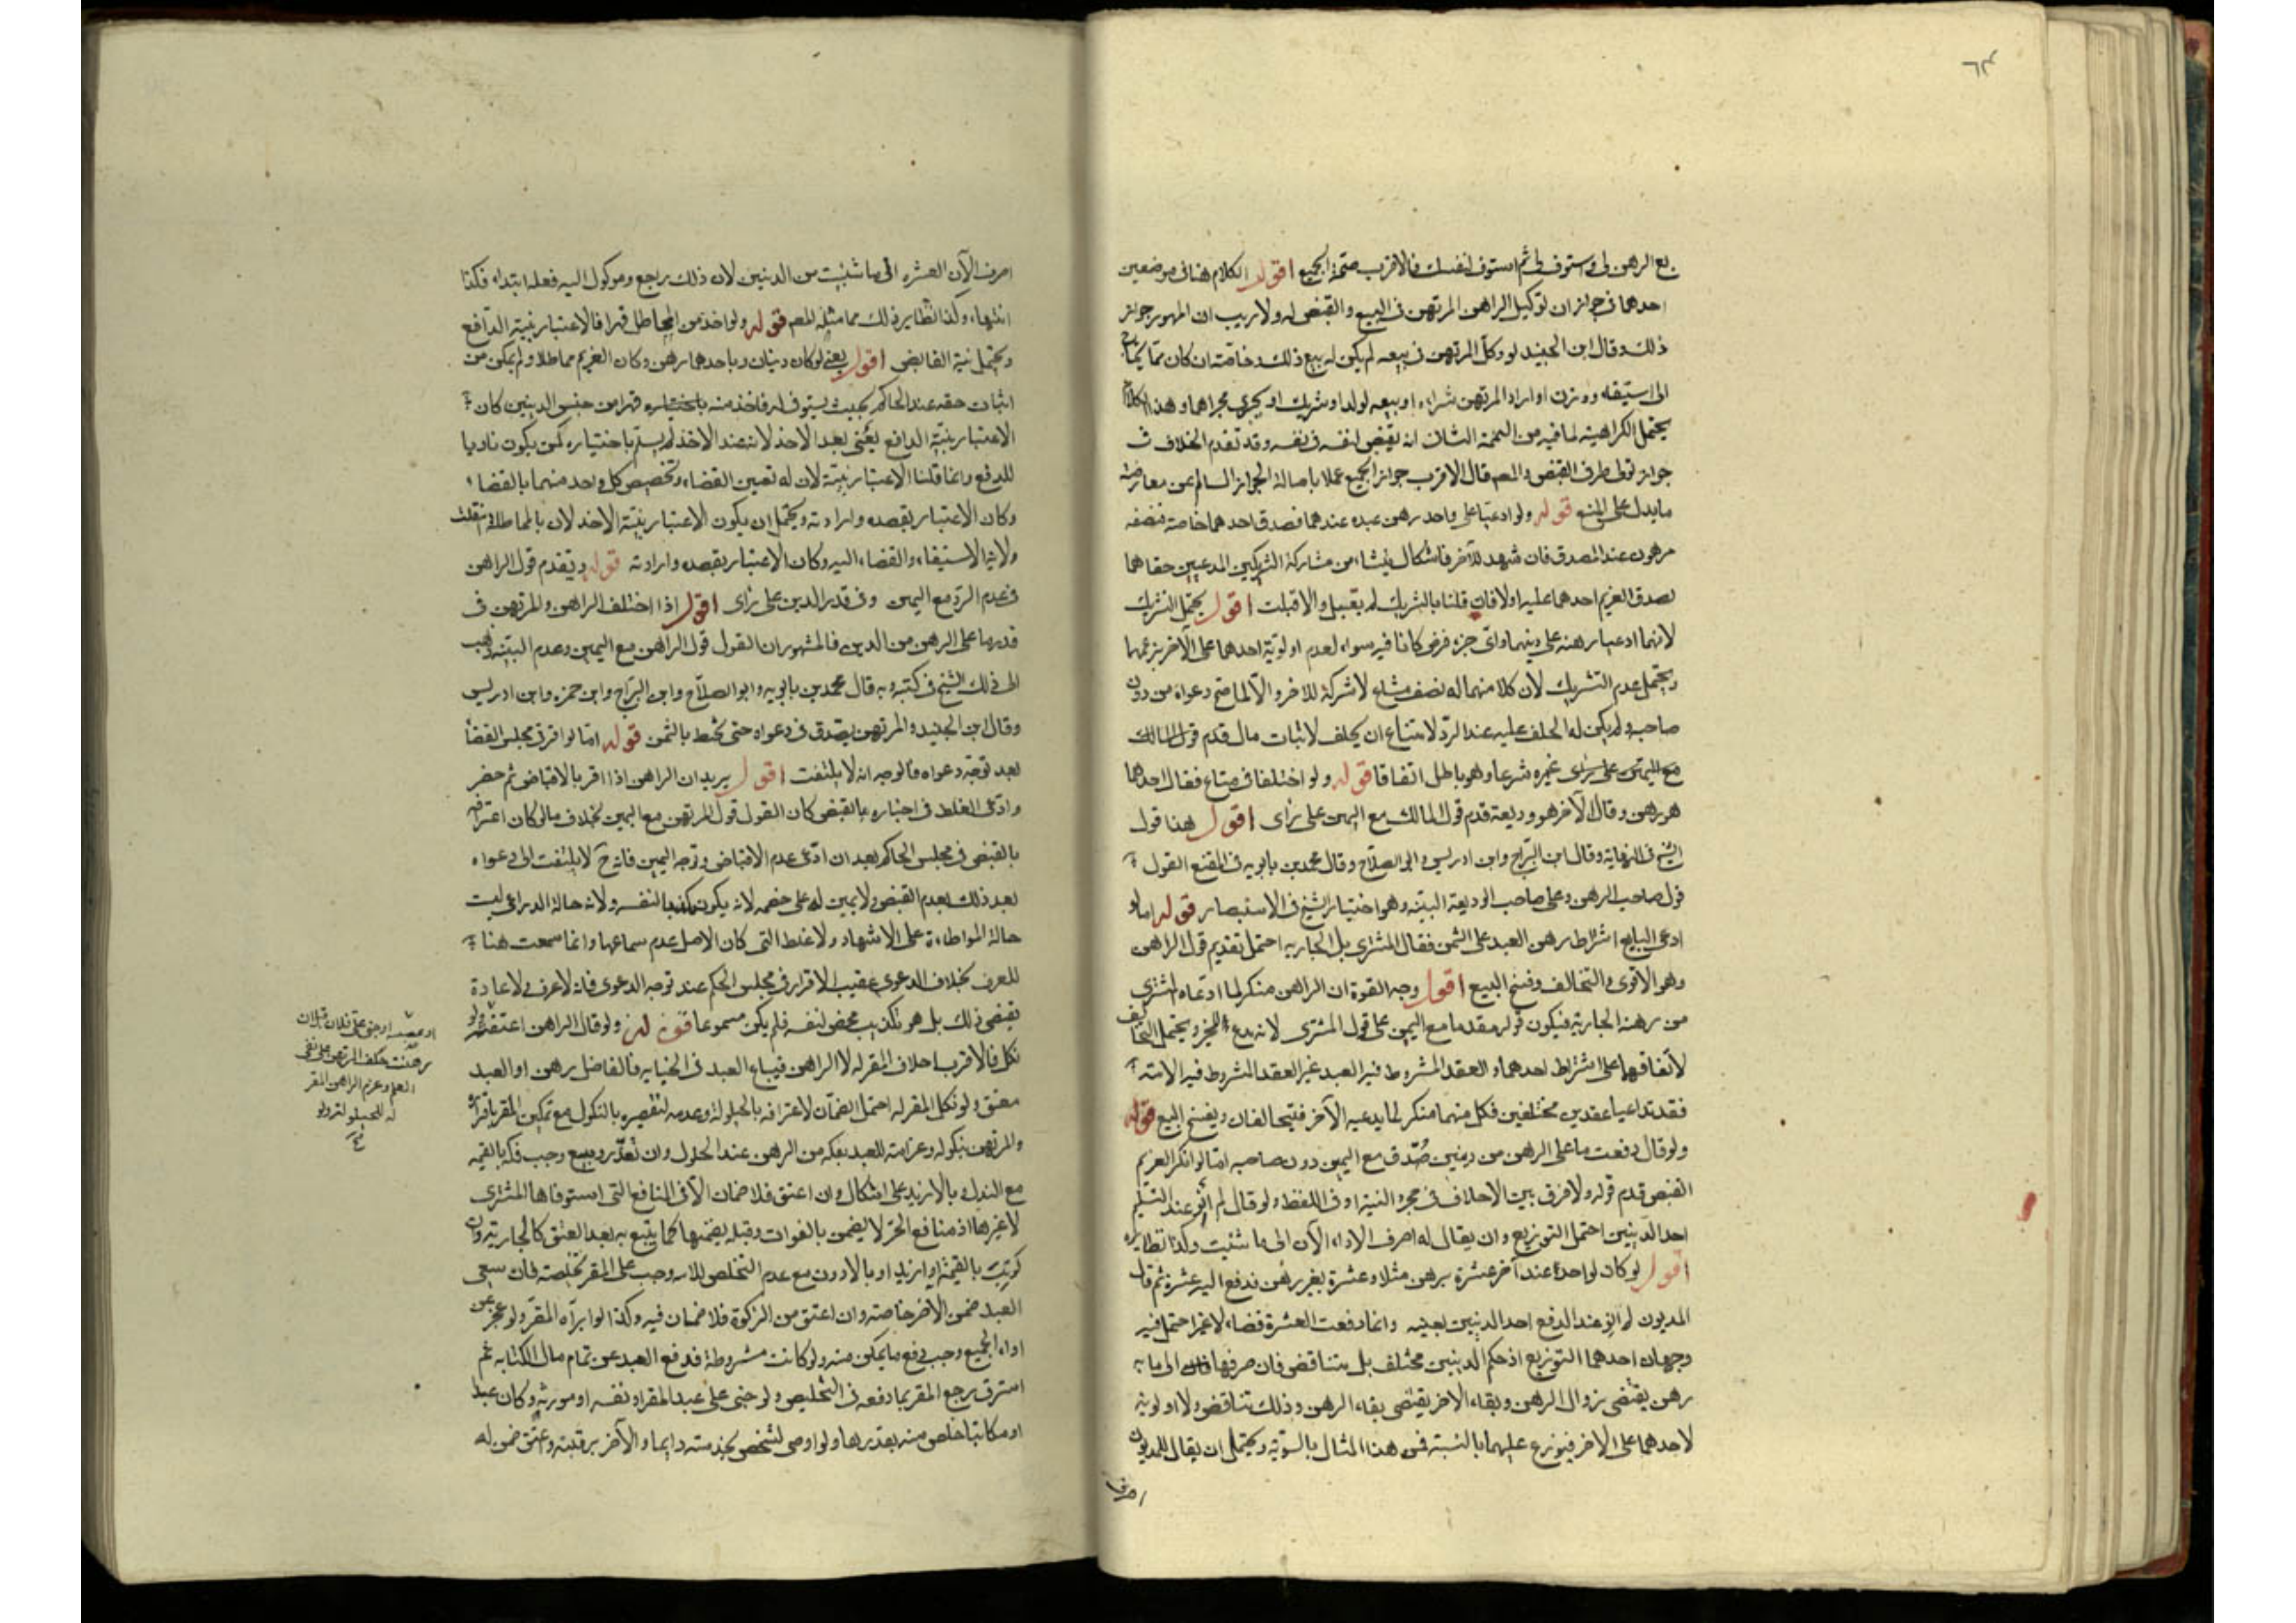 ٦٣
بع الرهن لى واستوف لى ثم استوف لنفسك فالاقرب صحة الجميع اقول الكلام هنا فى موضعين
احدهما فى جواز ان توكيل الراهن المرتهن فى البيع والقبض له ولا ريب ان المهور جواز
ذلك وقال ابن الجنيد لو وكل المرتهن فى بيعه لم يكن له بيع ذلك وخاصة ان كان مما يحتاج
الى استيفاء ووزن او اراد المرتهن شراءه او بيعه لولد او شريك او يجرى مجراها وهذا الكلام
يحتمل الكراهية لما فيه من التهمة الثانى ان يقبض لنفسه من نفسه وقد تقدم الخلاف فى
جواز تولى طرفى القبض والمصم قال الاقرب جواز الجميع عملا باصالة الجواز السالم عن معارضة
ما يدل على المنع قوله ولو ادعيا على واحد رهن عبده عندهما فصدق احدهما خاصة فنصفه
مرهون عند المصدق فان شهد للآخر فاشكال ينشاء من مشاركة الشريكين المدعيين حقا هما
يصدق الغريم احدهما عليه اولا فان قلنا بالتشريك لم يقبل والا قبلت اقول يحتمل التشريك
لانهما ادعيا رهنه على دينهما واى جزء فرض كانا فيه سواء لعدم اولوية احدهما على الآخر بزعمهما
ويحتمل عدم التشريك لان كلا منهما له نصف مشاع لا شركة للآخر والا لما صح دعواه من دون
صاحبه ولم يكن له الحلف عليه عند الرد لامتناع ان يحلف لاثبات مال قدم قول المالك
مع اليمين على راى غيره شرعا وهو باطل اتفاقا قوله ولو اختلفا فى متاع فقال احدهما
هو رهن وقال الآخر هو وديعة قدم قول المالك مع اليمين على راى اقول هذا قول
الشيخ فى النهاية وقال ابن البراج وابن ادريس وابو الصلاح وقال محمد بن بابويه فى المقنع القول
قول صاحب الرهن وعلى صاحب الوديعة البينة وهو اختيار الشيخ فى الاستبصار قوله اما لو
ادعى البايع اشتراط رهن العبد على الثمن فقال المشترى بل الجارية احتمل تقديم قول الراهن
وهو الاقوى والتحالف وفسخ البيع اقول وجه القوة ان الراهن منكر لما ادعاه المشترى
من رهنه الجارية فيكون قوله مقدما مع اليمين على قول المشترى لانه مدع ويحتمل التحالف
لاتفاقهما على اشتراط احدهما والعقد المشروط فيه العبد غير العقد المشروط فيه الامة
فقد تداعيا عقدين مختلفين فكل منهما منكر لما يدعيه الآخر فيتحالفان ويفسخ البيع قوله
ولو قال دفعت ما على الراهن من دينين صدق مع اليمين دون صاحبه اما لو انكر الغريم
القبض قدم قوله ولا فرق بين الاختلاف فى مجرد النية او فى اللفظ ولو قال لم انو عند التسليم
احد الدينين احتمل التوزيع وان يقال له اصرف الاداء الآن الى ما شئت وكذا نظائره
اقول لو كان لواحد عند آخر عشرة برهن مثلا وعشرة بغير رهن فدفع اليه عشرة ثم قال
المديون لم انو عند الدفع احد الدينين بعينه وانما دفعت العشرة قضاء لا غير احتمل فيه
وجهان احدهما التوزيع اذ حكم الدينين مختلف بل يتناقض فان صرفها الى ما به
رهن يقتضى زوال الرهن وبقاء الآخر يقتضى بقاء الرهن وذلك تناقض ولا اولوية
لاحدهما على الآخر فيوزع عليهما بالنسبة فى هذا المثال بالسوية ويحتمل ان يقال للمديون
اصرف
اصرف الآن العشرة الى ما شئت من الدينين لان ذلك يرجع وموكول اليه فعله ابتداء فكذا
انتهاء وكذا نظاير ذلك مما مثله المصم قوله ولو اخذ من المماطل قهرا فالاعتبار بنية الدافع
ويحتمل نية القابض اقول يعنى لو كان دينان وباحدهما رهن وكان الغريم مماطلا ولم يمكن من
اثبات حقه عند الحاكم بحيث يستوفى له فاخذ منه قهرا من جنس الدينين كان
الاعتبار بنية الدافع يعنى بعد الاخذ لانه عند الاخذ لم يسلم باختياره لمن يكون ناويا
للدفع وانما قلنا الاعتبار بنيته لان له تعيين القضاء وتخصيص كل واحد منهما بالقضاء
وكان الاعتبار بقصده وارادته ويحتمل ان يكون الاعتبار بنية الآخذ لان بالمماطلة انتقلت
ولاية الاستيفاء والقضاء اليه وكان الاعتبار بقصده وارادته قوله ويقدم قول الراهن
فى عدم الرد مع اليمين وفى قدر الدين على راى اقول اذا اختلف الراهن والمرتهن فى
قدر ما على الرهن من الدين فالمشهور ان القول قول الراهن مع اليمين وعدم البينة ذهب
الى ذلك الشيخ فى كتبه وبه قال محمد بن بابويه وابو الصلاح وابن البراج وابن حمزه وابن ادريس
وقال ابن الجنيد والمرتهن يصدق فى دعواه حتى يحيط بالثمن قوله اما لو اقر فى مجلس القضاء
بعد توجه دعواه فالوجه انه لا يلتفت اقول يريد ان الراهن اذا اقر بالاقباض ثم حضر
وادعى الغلط فى اخباره بالقبض كان القول قول المرتهن مع اليمين بخلاف ما لو كان اعترافه
بالقبض فى مجلس الحاكم بعد ان ادعى عدم الاقباض وتوجه اليمين فانه ح لا يلتفت الى دعواه
بعد ذلك بعدم القبض ولا يمين له على خصمه لانه يكون مكذبا لنفسه ولانه حالة الدعوى ليست
حالة المواطاءة على الاشهاد ولا غلط التى كان الاصل عدم سماعها وانما سمعت هنا
للعرف بخلاف الدعوى عقيب الاقرار فى مجلس الحكم عند توجه الدعوى فانه لا عرف ولا عادة
يقتضى ذلك بل هو تكذيب محض لنفسه فلم يكن مسموعا قوله ولو قال الراهن اعتقته ولو
نكل فالاقرب احلاف المقر له لا الراهن فيباع العبد فى الجناية فالفاضل رهن او العبد
معتق ولو نكل المقر له احتمل الضمان لاعترافه بالحيلولة وعدمه لتقصيره بالنكول مع تمكين المقر باقراره
والمرتهن بنكوله وغرامته للعبد بفكه من الرهن عند الحلول وان تعذر وبيع وجب فكه بالقيمه
مع البذل وبالازيد على اشكال وان اعتق فلا ضمان الا فى المنافع التى استوفاها المشترى
لا غيرها اذ منافع الحر لا يضمن بالفوات وقبله يضمنها كما يتبع به بعد العتق كالجارية وان
كوتب بالقيمة او ازيد او بالادون مع عدم التخلص للامه وجب على المقر تخلصته فان سعى
العبد ضمن الآخر خاصة وان اعتق من الزكوة فلا ضمان فيه وكذا لو ابرآه المقر ولو عجز عن
اداء الجميع وجب دفع ما يمكن منه ولو كانت مشروطة فدفع العبد عن تمام مال الكتابه ثم
استرق رجع المقر بما دفعه فى التخليص ولو جنى على عبد المقر او نفسه او مورثه وكان عبدا
او مكاتبا خلص منه بقدرها ولو اوصى لشخص بخدمته دايما والآخر برقبته وعتق ضمن له
او غصبته او جنى على فلان قبل ان
رهنت حلف المرتهن على نفى
العلم وغرم الراهن المقر
له للحيلولة ولو